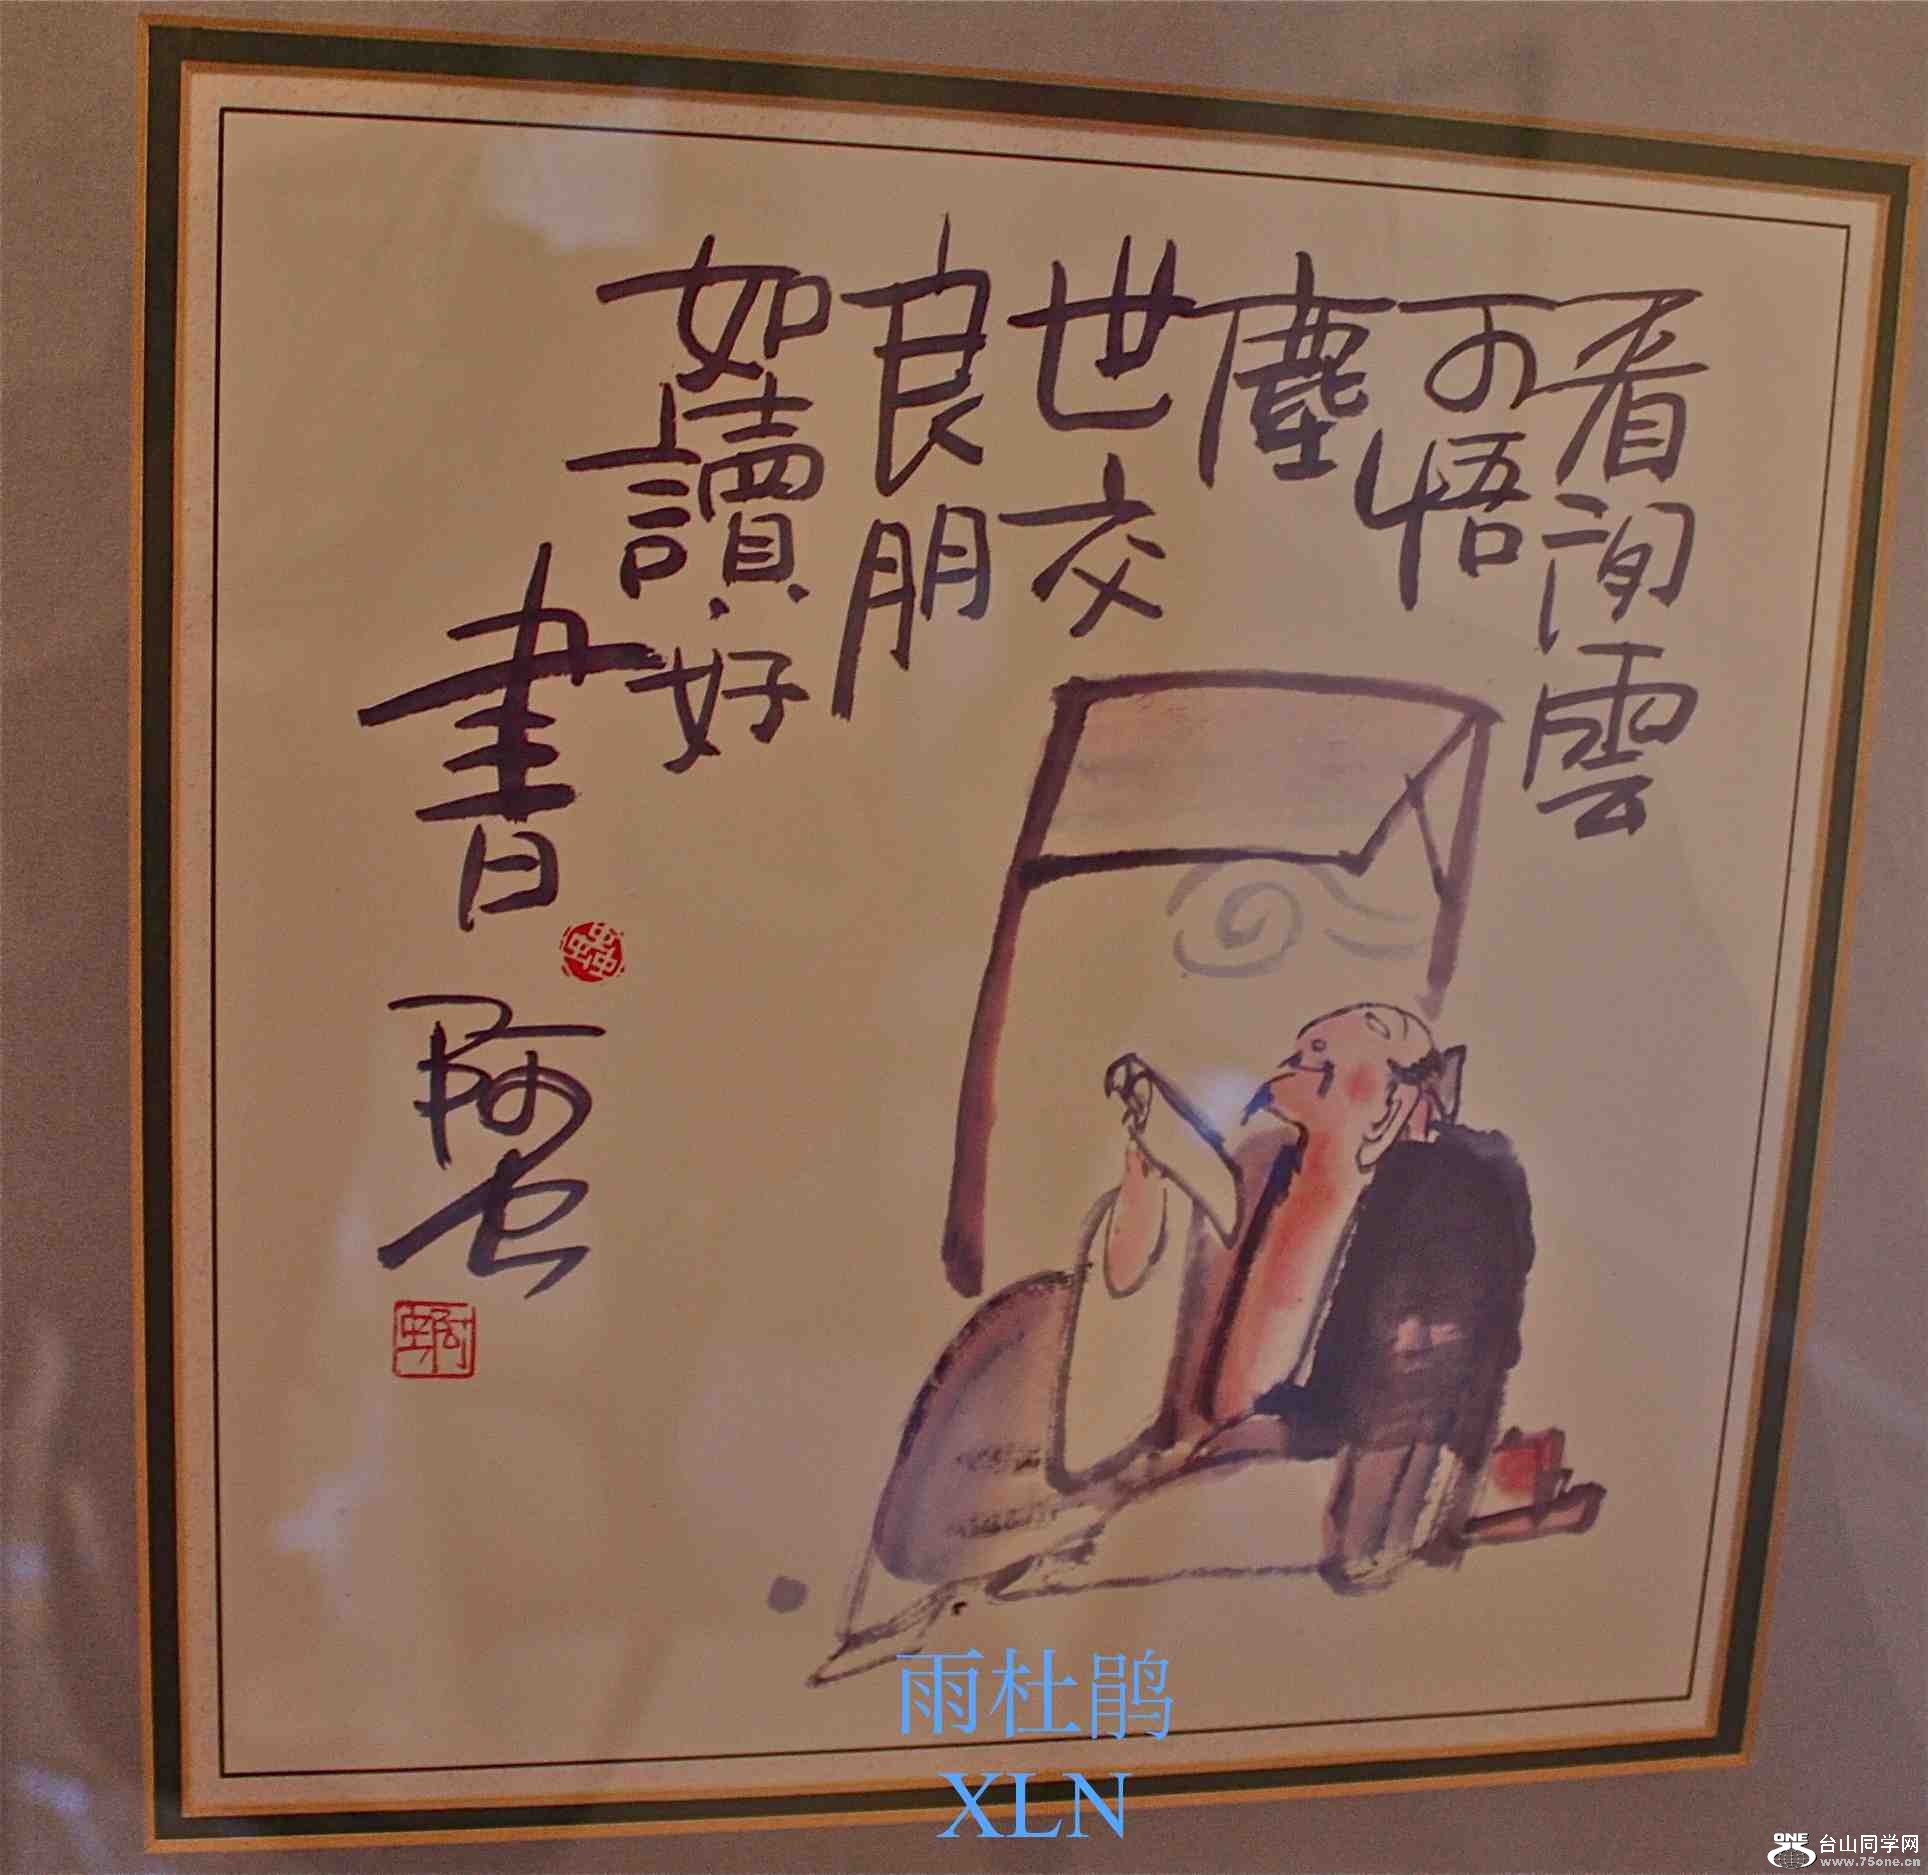 看閒雲
可悟
塵
世交
良朋
如讀好
書
阿虫
雨杜鹃
XLN
ONE 台山同学网
www.75one.cn